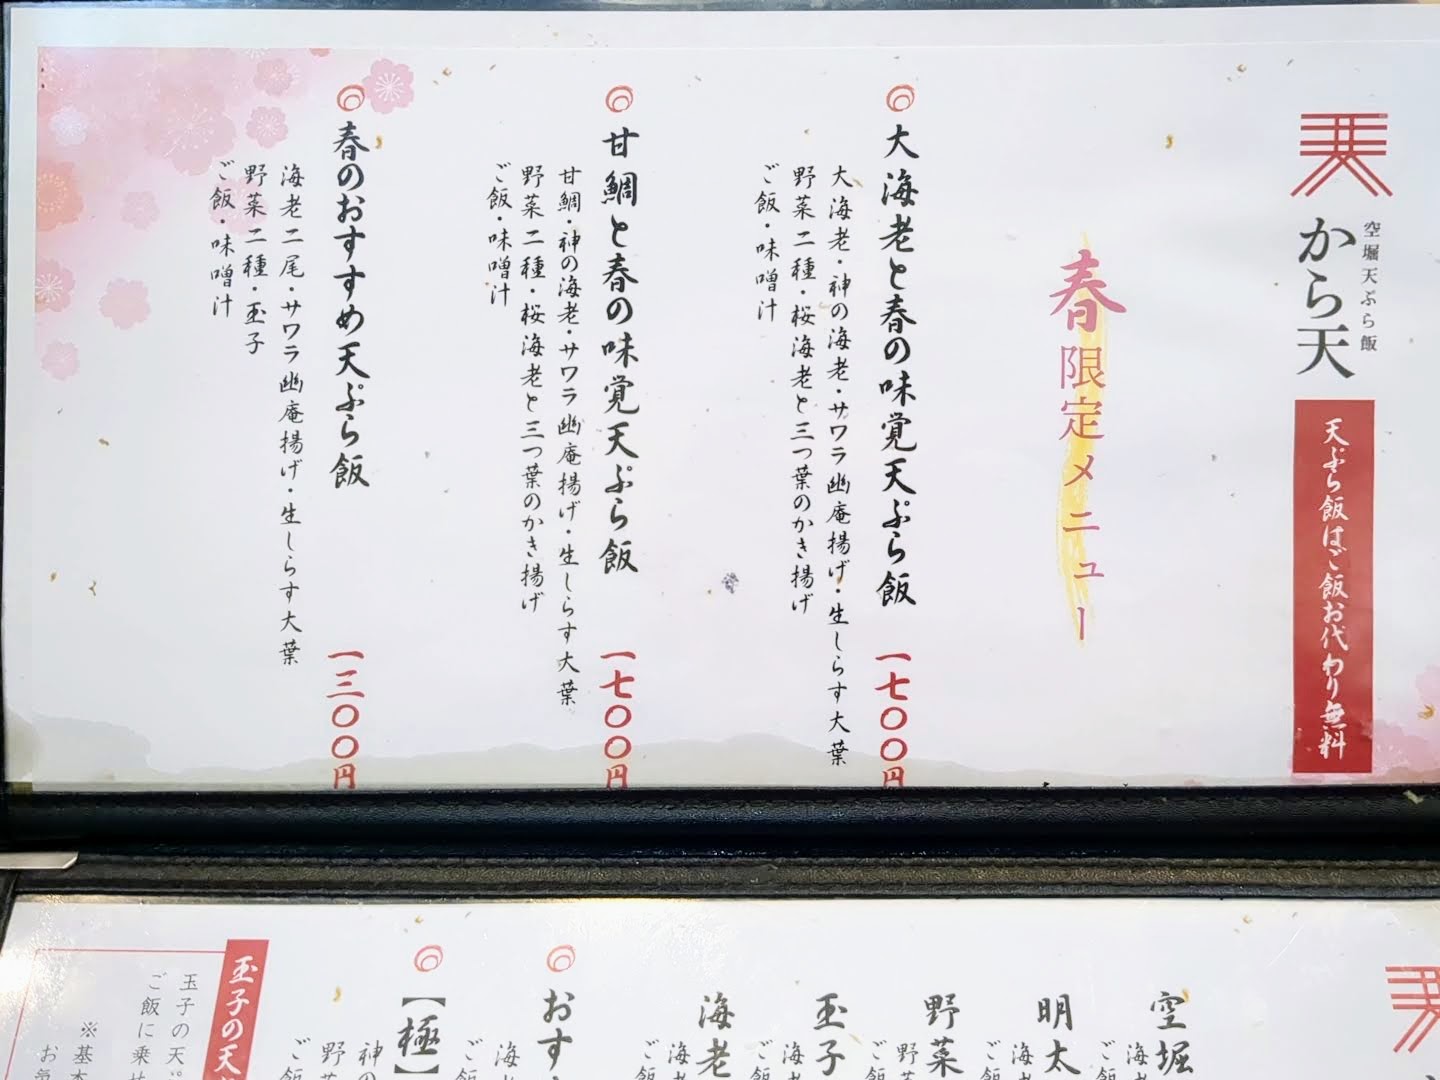 空堀天ぷら飯
から天
天ぷら飯はご飯お代わり無料
春限定メニュー
大海老と春の味覚天ぷら飯 一七〇〇円
大海老・神の海老・サワラ幽庵揚げ・生しらす大葉
野菜二種・桜海老と三つ葉のかき揚げ
ご飯・味噌汁
甘鯛と春の味覚天ぷら飯 一七〇〇円
甘鯛・神の海老・サワラ幽庵揚げ・生しらす大葉
野菜二種・桜海老と三つ葉のかき揚げ
ご飯・味噌汁
春のおすすめ天ぷら飯 一三〇〇円
海老二尾・サワラ幽庵揚げ・生しらす大葉
野菜二種・玉子
ご飯・味噌汁
空堀
海老
ご飯
明太
海
ご飯
野菜
野菜
ご飯
玉子
海老
ご飯
海老
海老
ご飯
おす
海
ご飯
【極】
神の
野菜
ご飯
玉子の天
玉子の天ぷ
ご飯に乗せ
※基本
お気